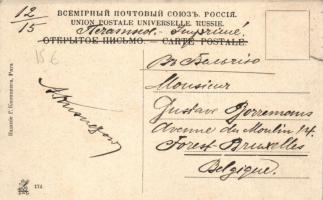 12/15
ВСЕМІРНЫЙ ПОЧТОВЫЙ СОЮЗЪ. РОССІЯ.
UNION POSTALE UNIVERSELLE. RUSSIE.
Печатное. - Imprimé.
ОТКРЫТОЕ ПИСЬМО. — CARTE POSTALE.
15€
Въ Бельгію
Monsieur
Gustave Borremans
Avenue du Moulin 14.
Forest-Bruxelles
Belgique.
174